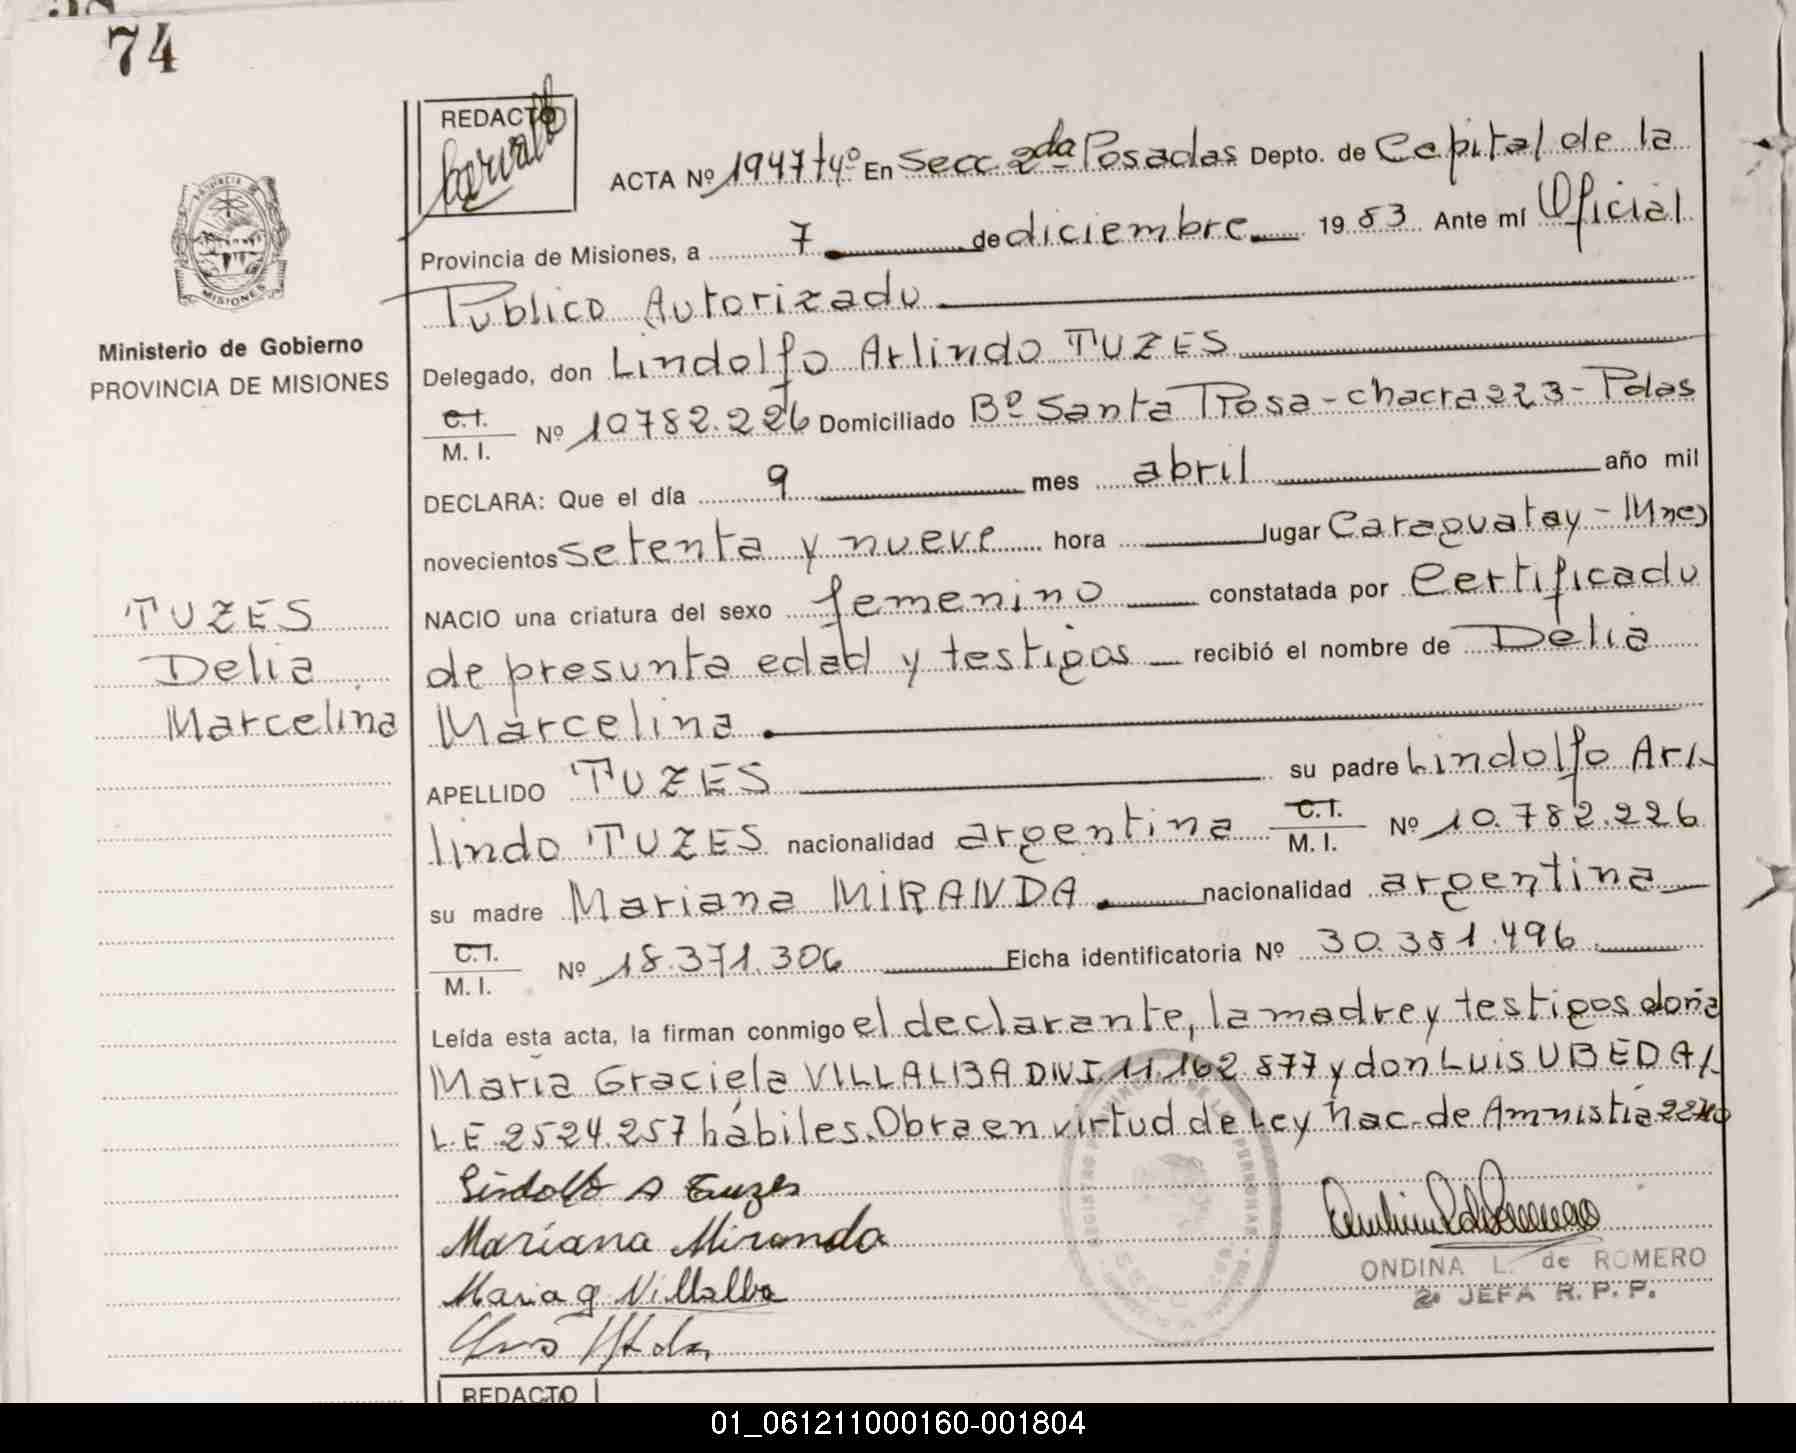 74
REDACTO
ACTA Nº 1947 tº4º En Secc 2da Posadas Depto. de Capital de la
Provincia de Misiones, a 7 de diciembre 1983 Ante mí Oficial
Público Autorizado
MISIONES
Ministerio de Gobierno
PROVINCIA DE MISIONES
Delegado, don Lindolfo Arlindo TUZES
C.I. M. I. Nº 10782.226 Domiciliado Bº Santa Rosa - chacra 223 - Pdas
DECLARA: Que el día 9 mes abril año mil
novecientos setenta y nueve hora lugar Caraguatay - Mnes
NACIO una criatura del sexo femenino constatada por Certificado
de presunta edad y testigos recibió el nombre de Delia
Marcelina
TUZES
Delia
Marcelina
APELLIDO TUZES su padre Lindolfo Ar/-
lindo TUZES nacionalidad argentina C.I. M. I. Nº 10.782.226
su madre Mariana MIRANDA nacionalidad argentina
C.I. M. I. Nº 18.371.306 Ficha identificatoria Nº 30.381.496
Leída esta acta, la firman conmigo el declarante, la madre y testigos doña
María Graciela VILLALBA DNI 11.162.877 y don Luis UBEDA/-
LE 2524.257 hábiles. Obra en virtud de Ley Nac. de Amnistía
Lindolfo A Tuzes
Mariana Miranda
Maria g Villalba
ONDINA L. de ROMERO
2ª JEFA R. P. P.
REDACTO
01_061211000160-001804